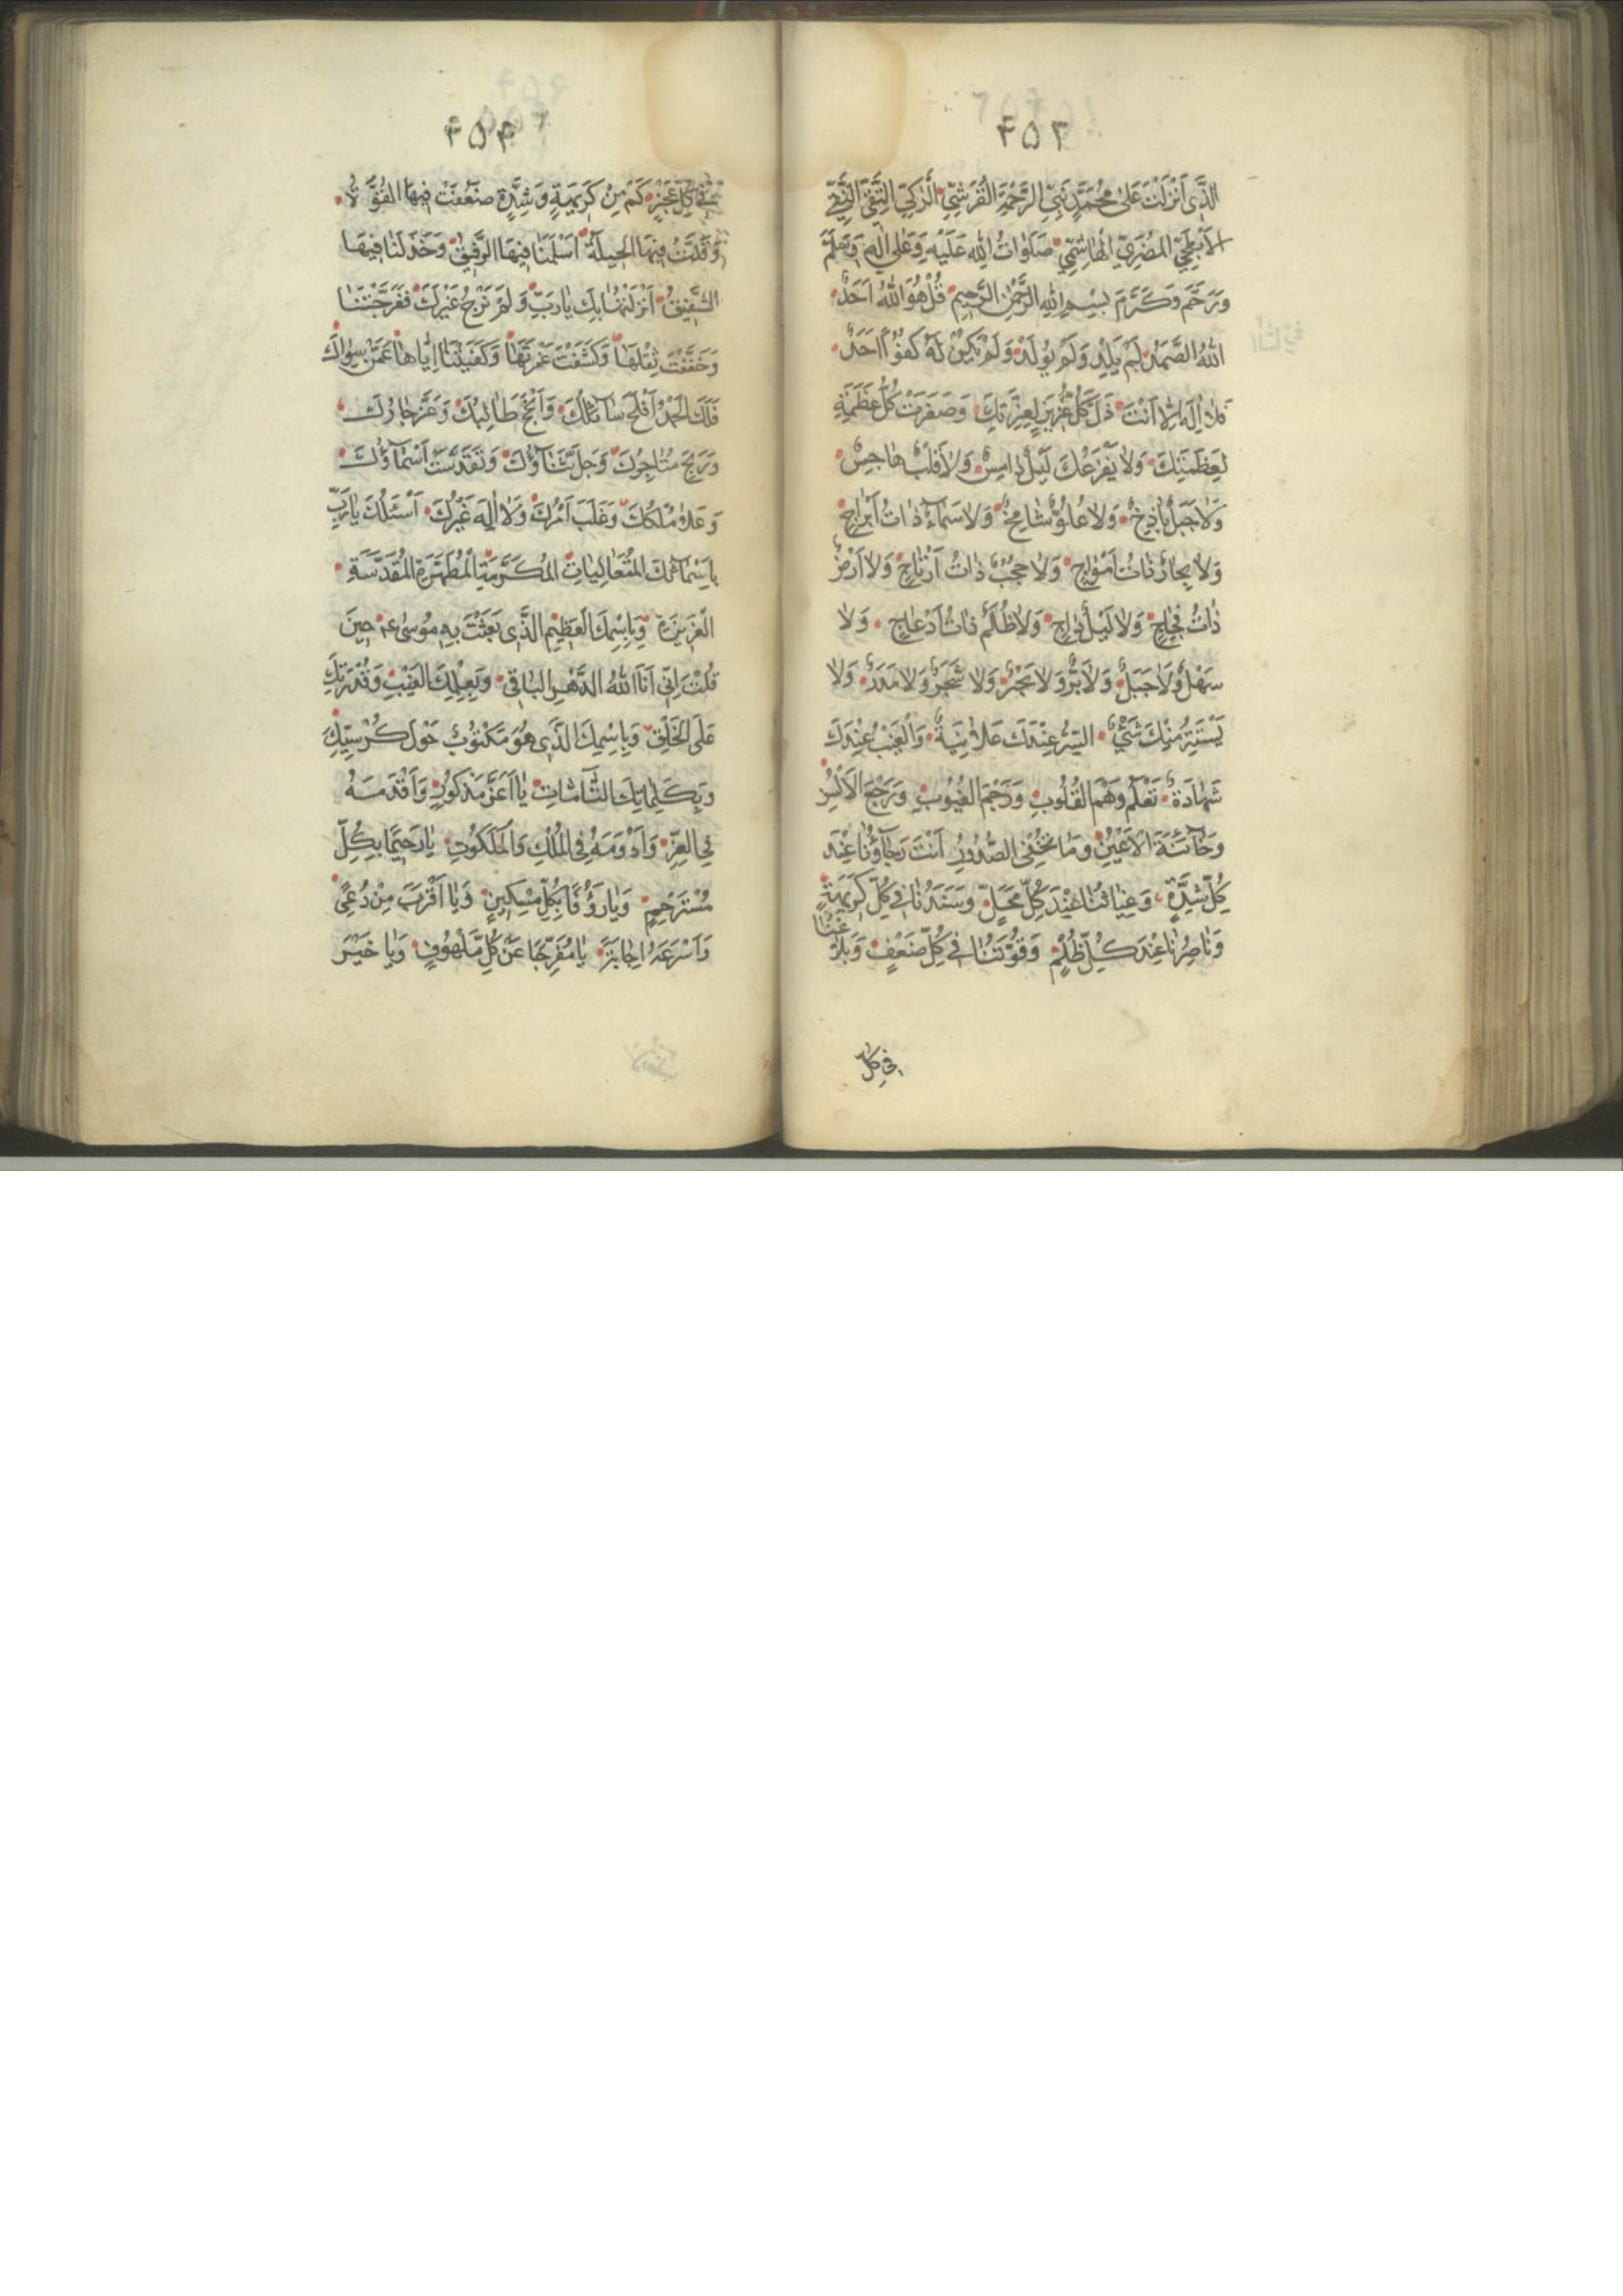 ۴۵۲
الَّذِی اَنْزَلْتَ عَلیٰ مُحَمَّدٍ نَبِیِّ الرَّحْمَةِ القُرَشِیِّ الزَّکِیِّ التَّقِیِّ النَّقِیِّ
الاَبْطَحِیِّ المُضَرِیِّ الْهاشِمِیِّ صَلَوٰاتُ اللهِ عَلَیْهِ وَعَلیٰ اٰلِهِ وَسَلَّمَ
وَرَحَّمَ وَکَرَّمَ بِسْمِ اللهِ الرَّحْمٰنِ الرَّحِیمِ قُلْ هُوَ اللهُ اَحَدٌ
اللهُ الصَّمَدُ لَمْ یَلِدْ وَلَمْ یُولَدْ وَلَمْ یَکُنْ لَهُ کُفُوًا اَحَدٌ
فَلاٰ اِلٰهَ اِلاّٰ اَنْتَ ذَلَّ کُلُّ عَزِیزٍ لِعِزَّتِکَ وَصَغُرَتْ کُلُّ عَظَمَةٍ
لِعَظَمَتِکَ وَلاٰ یَفْزَعُکَ لَیْلٌ دٰامِسٌ وَلاٰ قَلْبٌ هٰاجِسٌ
وَلاٰ جَبَلٌ بٰاذِخٌ وَلاٰ عُلُوٌّ شٰامِخٌ وَلاٰ سَمٰاءٌ ذٰاتُ اَبْرٰاجٍ
وَلاٰ بِحٰارٌ ذٰاتُ اَمْوٰاجٍ وَلاٰ حُجُبٌ ذٰاتُ اَرْتٰاجٍ وَلاٰ اَرْضٌ
ذٰاتُ فِجٰاجٍ وَلاٰ لَیْلٌ دٰاجٍ وَلاٰ ظُلَمٌ ذٰاتُ اَدْعٰاجٍ وَلاٰ
سَهْلٌ وَلاٰ جَبَلٌ وَلاٰ بَرٌّ وَلاٰ بَحْرٌ وَلاٰ شَجَرٌ وَلاٰ مَدَرٌ وَلاٰ
یَسْتَتِرُ مِنْکَ شَیْءٌ السِّرُّ عِنْدَکَ عَلاٰنِیَةٌ وَالْغَیْبُ عِنْدَکَ
شَهٰادَةٌ تَعْلَمُ وَهْمَ القُلُوبِ وَرَجْمَ الغُیُوبِ وَرَجْعَ الاَلْسُنِ
وَخٰائِنَةَ الاَعْیُنِ وَمٰا تُخْفِی الصُّدُورُ اَنْتَ رَجٰاؤُنٰا عِنْدَ
کُلِّ شِدَّةٍ وَغِیٰاثُنٰا عِنْدَ کُلِّ مَحَلٍّ وَسَنَدُنٰا فِی کُلِّ کَرِیهَةٍ
وَنٰاصِرُنٰا عِنْدَ کُلِّ ظُلْمٍ وَقُوَّتُنٰا فِی کُلِّ ضَعْفٍ وَبَلاٰغُنٰا
فی کل
۴۵۳
فِی کُلِّ عَجْزٍ کَمْ مِنْ کَرِیهَةٍ وَشِدَّةٍ ضَعُفَتْ فِیهَا القُوَّةُ
وَقَلَّتْ فِیهَا الحِیلَةُ اَسْلَمَنٰا فِیهَا الرَّفِیقُ وَخَذَلَنٰا فِیهَا
الشَّفِیقُ اَنْزَلْتُهٰا بِکَ یٰارَبِّ وَلَمْ نَرْجُ غَیْرَکَ فَفَرَّجْتَهٰا
وَخَفَّفْتَ ثِقْلَهٰا وَکَشَفْتَ غَمْرَتَهٰا وَکَفَیْتَنٰا اِیّٰاهٰا عَمَّنْ سِوٰاکَ
فَلَکَ الْحَمْدُ اَفْلَحَ سٰائِلُکَ وَاَنْجَحَ طٰالِبُکَ وَعَزَّ جٰارُکَ
وَرَبِحَ مُتٰاجِرُکَ وَجَلَّ ثَنٰاؤُکَ وَتَقَدَّسَتْ اَسْمٰاؤُکَ
وَعَلاٰ مُلْکُکَ وَغَلَبَ اَمْرُکَ وَلاٰ اِلٰهَ غَیْرُکَ اَسْئَلُکَ یٰارَبِّ
بِاَسْمٰائِکَ المُتَعٰالِیٰاتِ المُکَرَّمَةِ الْمُطَهَّرَةِ المُقَدَّسَةِ
الْعَزِیزَةِ وَبِاسْمِکَ الْعَظِیمِ الَّذِی بَعَثْتَ بِهِ مُوسیٰ ع حِینَ
قُلْتَ اِنِّی اَنَا اللهُ الدَّهْرِ البٰاقِی وَبِعِلْمِکَ الْغَیْبَ وَقُدْرَتِکَ
عَلَی الْخَلْقِ وَبِاسْمِکَ الَّذِی هُوَ مَکْتُوبٌ حَوْلَ کُرْسِیِّکَ
وَبِکَلِمٰاتِکَ التّٰامّٰاتِ یٰا اَعَزَّ مَذْکُورٍ وَاَقْدَمَهُ
فِی العِزِّ وَاَدْوَمَهُ فِی الْمُلْکِ وَالْمَلَکُوتِ یٰا رَحِیمًا بِکُلِّ
مُسْتَرْحِمٍ وَیٰا رَؤُفًا بِکُلِّ مِسْکِینٍ وَیٰا اَقْرَبَ مَنْ دُعِیَ
وَاَسْرَعَهُ اِجٰابَةً یٰا مُفَرِّجًا عَنْ کُلِّ مَلْهُوفٍ وَیٰا خَیْرَ